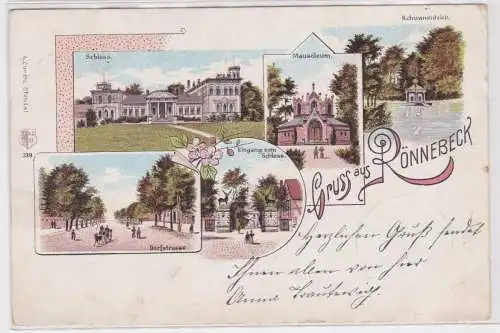 Schloss.
Mausoleum.
Schwanenteich.
Eingang zum
Schloss.
Gruss aus RÖNNEBECK
Dorfstrasse
239
Herzlichen Gruß sendet
Ihnen allen von hier
Anna